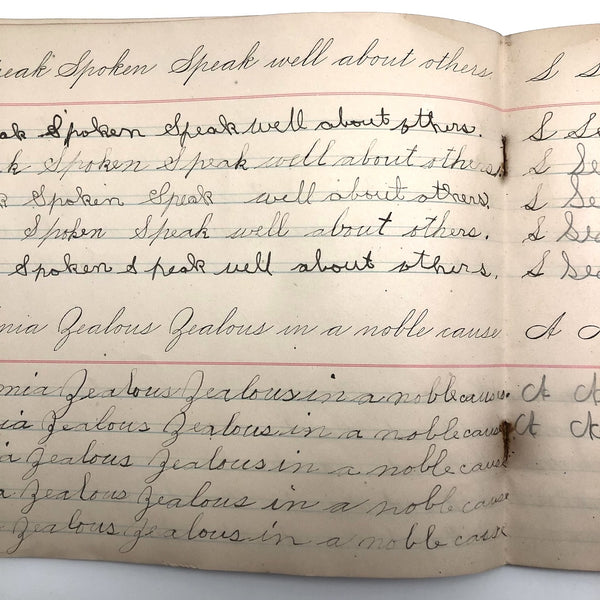 peak Spoken Speak well about others. S S
ak Spoken Speak well about others. S Se
k Spoken Speak well about others. S Se
k Spoken Speak well about others. S Se
Spoken Speak well about others. S Sea
Spoken Speak well about others. S Sea
nia Zealous Zealous in a noble cause A A
mia Zealous Zealous in a noble cause. A A
ia Zealous Zealous in a noble cause A A
ia Zealous Zealous in a noble cause
a Zealous Zealous in a noble cause
Zealous Zealous in a noble cause